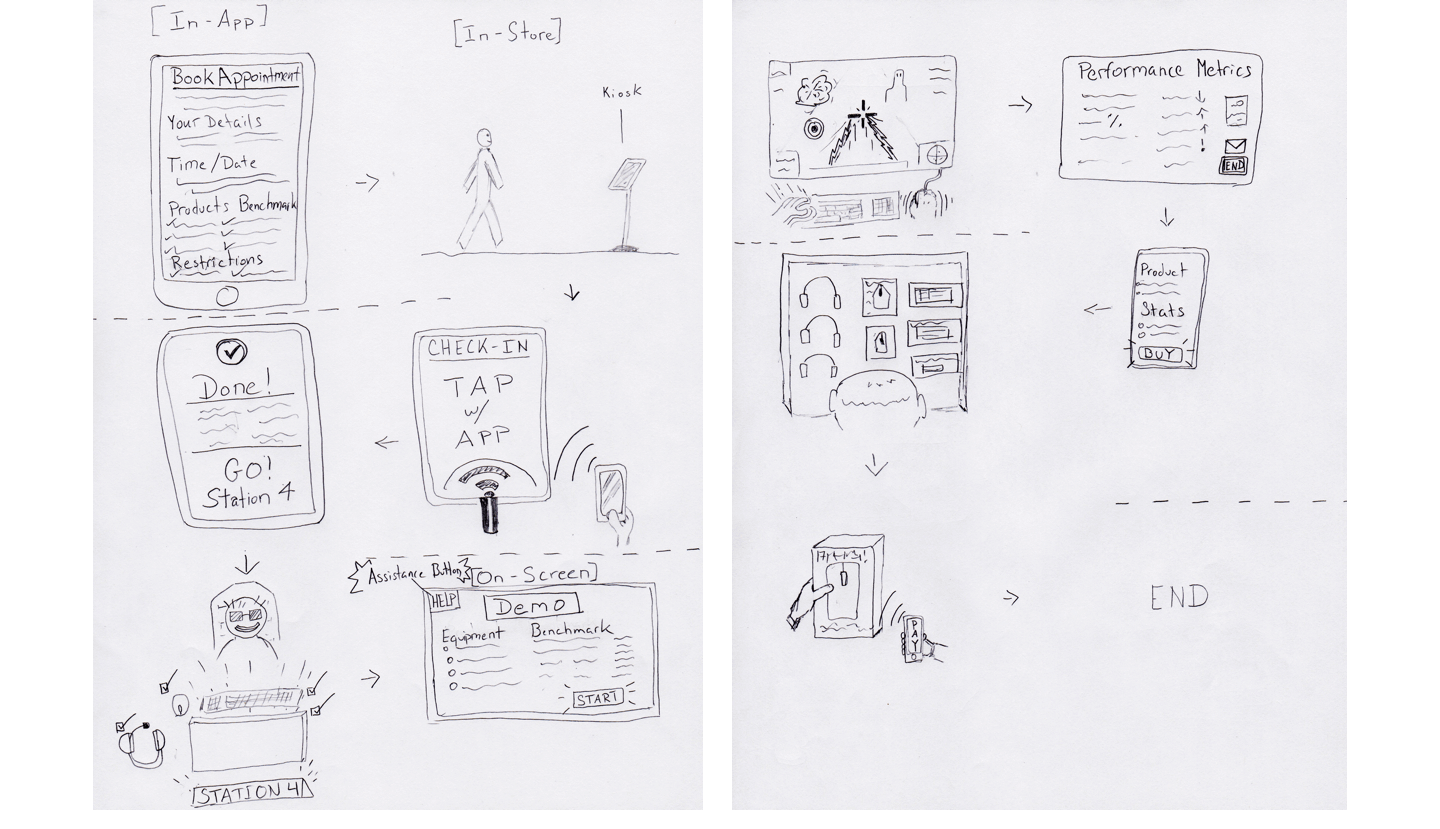 [In-App]
[In-Store]
Book Appointment
Your Details
Time/Date
Products Benchmark
Restrictions
Kiosk
CHECK-IN
TAP
w/
APP
Done!
GO!
Station 4
STATION 4
Assistance Button
[On-Screen]
HELP
Demo
Equipment
Benchmark
START
Performance Metrics
%
!
END
Product
Stats
BUY
PAY
END